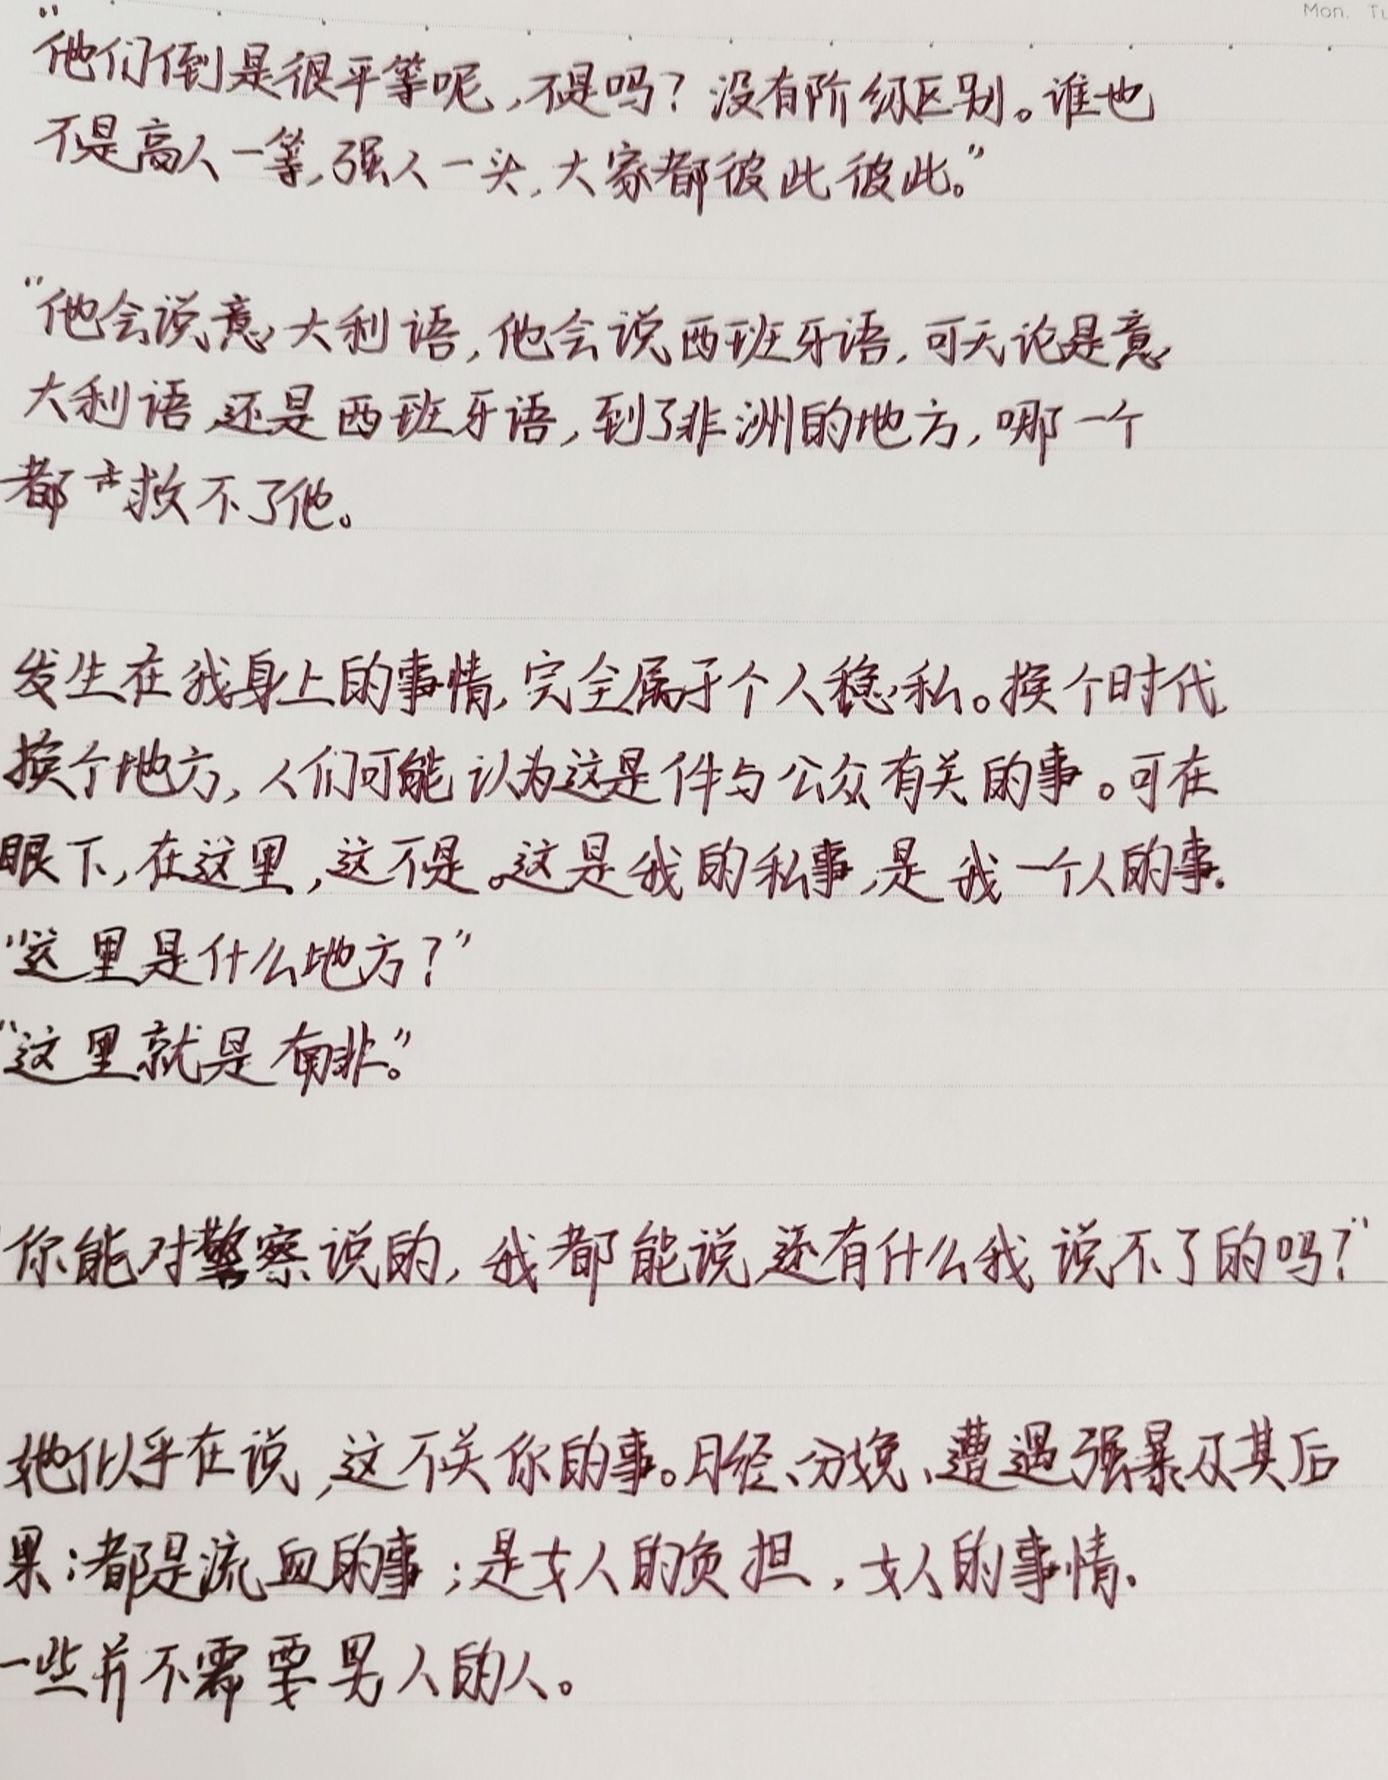 Mon. Tu
"他们倒是很平等呢,不是吗?没有阶级区别。谁也
不是高人一等,强人一头,大家都彼此彼此。"
"他会说意大利语,他会说西班牙语,可无论是意
大利语还是西班牙语,到了非洲的地方,哪一个
都救不了他。
发生在我身上的事情,完全属于个人稳私。换个时代,
换个地方,人们可能认为这是件与公众有关的事。可在
眼下,在这里,这不是。这是我的私事,是我一个人的事。
"这里是什么地方?"
"这里就是南非。"
"你能对警察说的,我都能说,还有什么我说不了的吗?"
她似乎在说,这不关你的事。月经、分娩、遭遇强暴及其后
果:都是流血的事;是女人的负担,女人的事情.
一些并不需要男人的人。